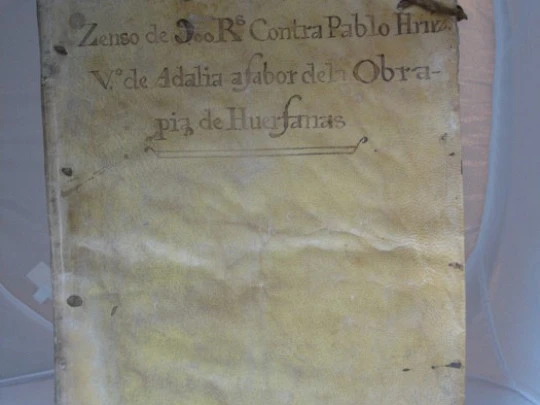 Zenso de 300 Rˢ Contra Pablo Hrnz.
V.º de Adalia afabor dela Obra-
pia de Huerfanas